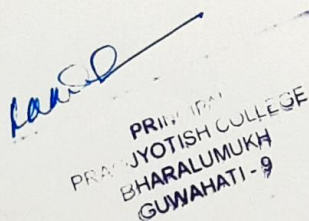 PRINCIPAL
PRAGJYOTISH COLLEGE
BHARALUMUKH
GUWAHATI - 9